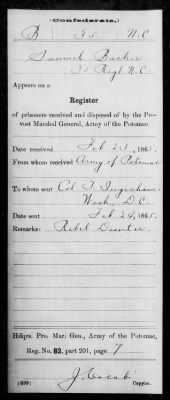 (Confederate.)
B 35 N.C.
Samuel Barker
35 Regt. N.C.
Appears on a
Register
of prisoners received and disposed of by the Pro-
vost Marshal General, Army of the Potomac.
Date received Feb 23, 1865.
From whom received Army of Potomac
To whom sent Col. T. Ingraham,
Wash. D.C.
Date sent Feb 24, 1865.
Remarks: Rebel Deserter.
Hdqrs. Pro. Mar. Gen., Army of the Potomac,
Reg. No. 82, part 201, page 7
(639) Copyist.